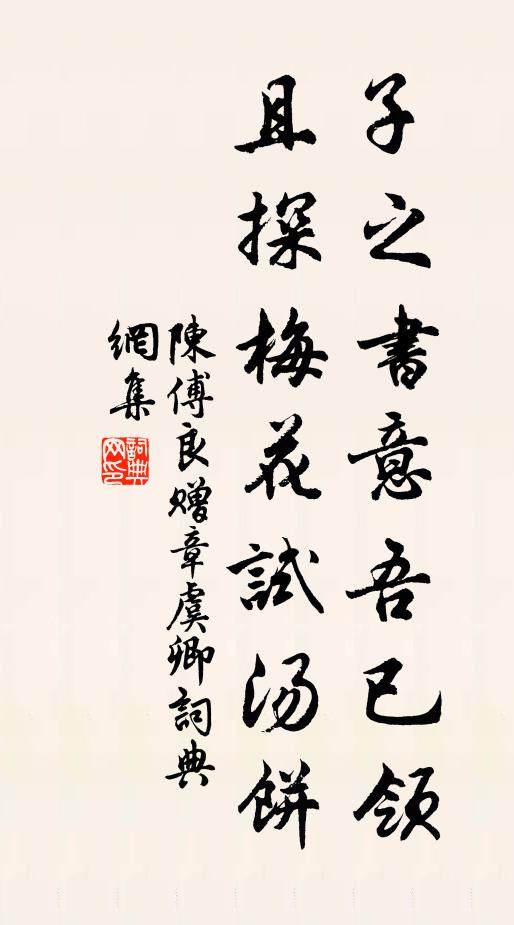 子之書意吾已領
且探梅花試汤餅
陳傅良贈章虞卿詞典
網集
詞典網印